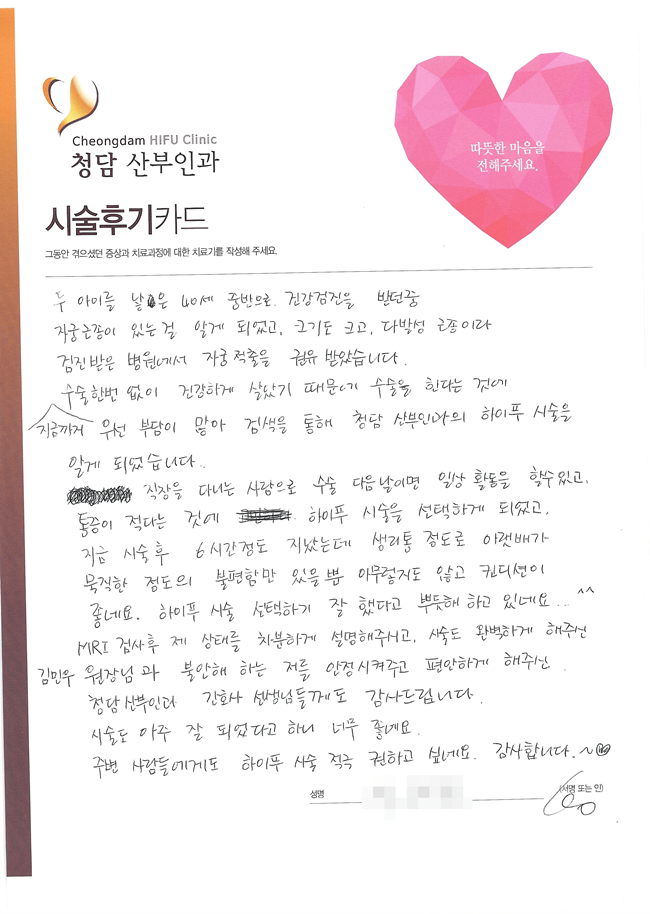 Cheongdam HIFU Clinic
청담 산부인과
따뜻한 마음을
전해주세요.
시술후기카드
그동안 겪으셨던 증상과 치료과정에 대한 치료기를 작성해 주세요.
두 아이를 낳은 40세 중반으로. 건강검진을 받던중
자궁근종이 있는걸 알게 되었고, 크기도 크고, 다발성 근종이라
검진받은 병원에서 자궁적출을 권유 받았습니다.
수술한번 없이 건강하게 살았기 때문에 수술을 한다는 것에
지금까지 우선 부담이 많아 검색을 통해 청담 산부인과의 하이푸 시술을
알게 되었습니다.
직장을 다니는 사람으로 수술 다음날이면 일상 활동을 할수있고,
통증이 적다는 것에 하이푸 시술을 선택하게 되었고,
지금 시술후 6시간정도 지났는데 생리통 정도로 아랫배가
묵직한 정도의 불편함만 있을뿐 아무렇지도 않고 컨디션이
좋네요. 하이푸 시술 선택하기 잘 했다고 뿌듯해 하고 있네요... ^^
MRI 검사후 제 상태를 차분하게 설명해주시고, 시술도 완벽하게 해주신
김민우 원장님과 불안해 하는 저를 안정시켜주고 편안하게 해주신.
청담산부인과 간호사 선생님들께도 감사드립니다.
시술도 아주 잘 되었다고 하니 너무 좋네요.
주변 사람들에게도 하이푸 시술 적극 권하고 싶네요. 감사합니다.~
성명
(서명 또는 인)